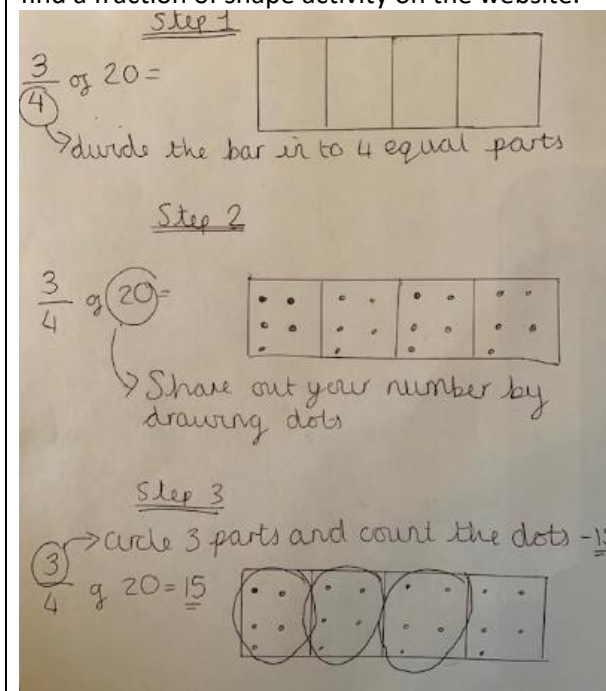 find a fraction of shape activity on the website.
Step 1
3/4 of 20=
divide the bar in to 4 equal parts
Step 2
3/4 of 20=
Share out your number by
drawing dots
Step 3
circle 3 parts and count the dots -15
3/4 of 20=15